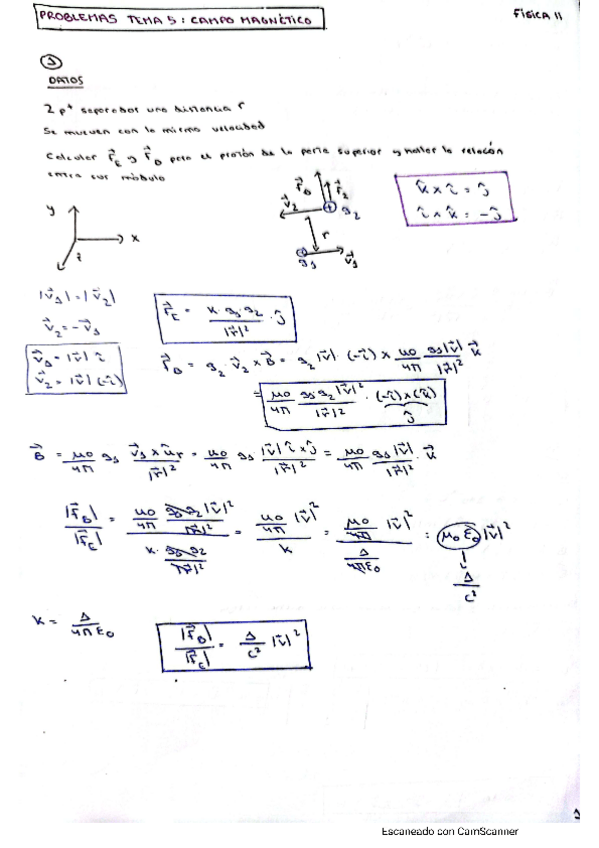 PROBLEMAS TEMA 5: CAMPO MAGNÉTICO
FÍSICA II
1
DATOS
2 p⁺ separados una distancia r
Se mueven con la misma velocidad
Calcular F⃗_E y F⃗_B para el protón de la parte superior y hallar la relación
entre sus módulo
y x z
F⃗_B F⃗_E v⃗_2 q_2 r q_1 v⃗_1
k̂ × î = ĵ
î × k̂ = -ĵ
|v⃗_1| = |v⃗_2|
v⃗_2 = -v⃗_1
v⃗_1 = |v⃗| î
v⃗_2 = |v⃗| (-î)
F⃗_E = K · q_1 q_2 / |r⃗|² · ĵ
F⃗_B = q_2 · v⃗_2 × B⃗ = q_2 |v⃗| · (-î) × μ_0/4π q_1|v⃗|/|r⃗|² k⃗
= μ_0/4π q_1 q_2 |v⃗|²/|r⃗|² · (-î) × (k̂)
ĵ
B⃗ = μ_0/4π q_1 v⃗_1 × û_r/|r⃗|² = μ_0/4π q_1 |v⃗| î × ĵ/|r⃗|² = μ_0/4π q_1|v⃗|/|r⃗|² · k⃗
|F⃗_B|/|F⃗_E| = μ_0/4π q_1 q_2 |v⃗|²/|r⃗|² / K · q_1 q_2/|r⃗|² = μ_0/4π |v⃗|² / K = μ_0/4π |v⃗|² / 1/4πε_0 = μ_0 ε_0 |v⃗|²
1/c²
K = 1/4πε_0
|F⃗_B|/|F⃗_E| = 1/c² |v⃗|²
1
Escaneado con CamScanner